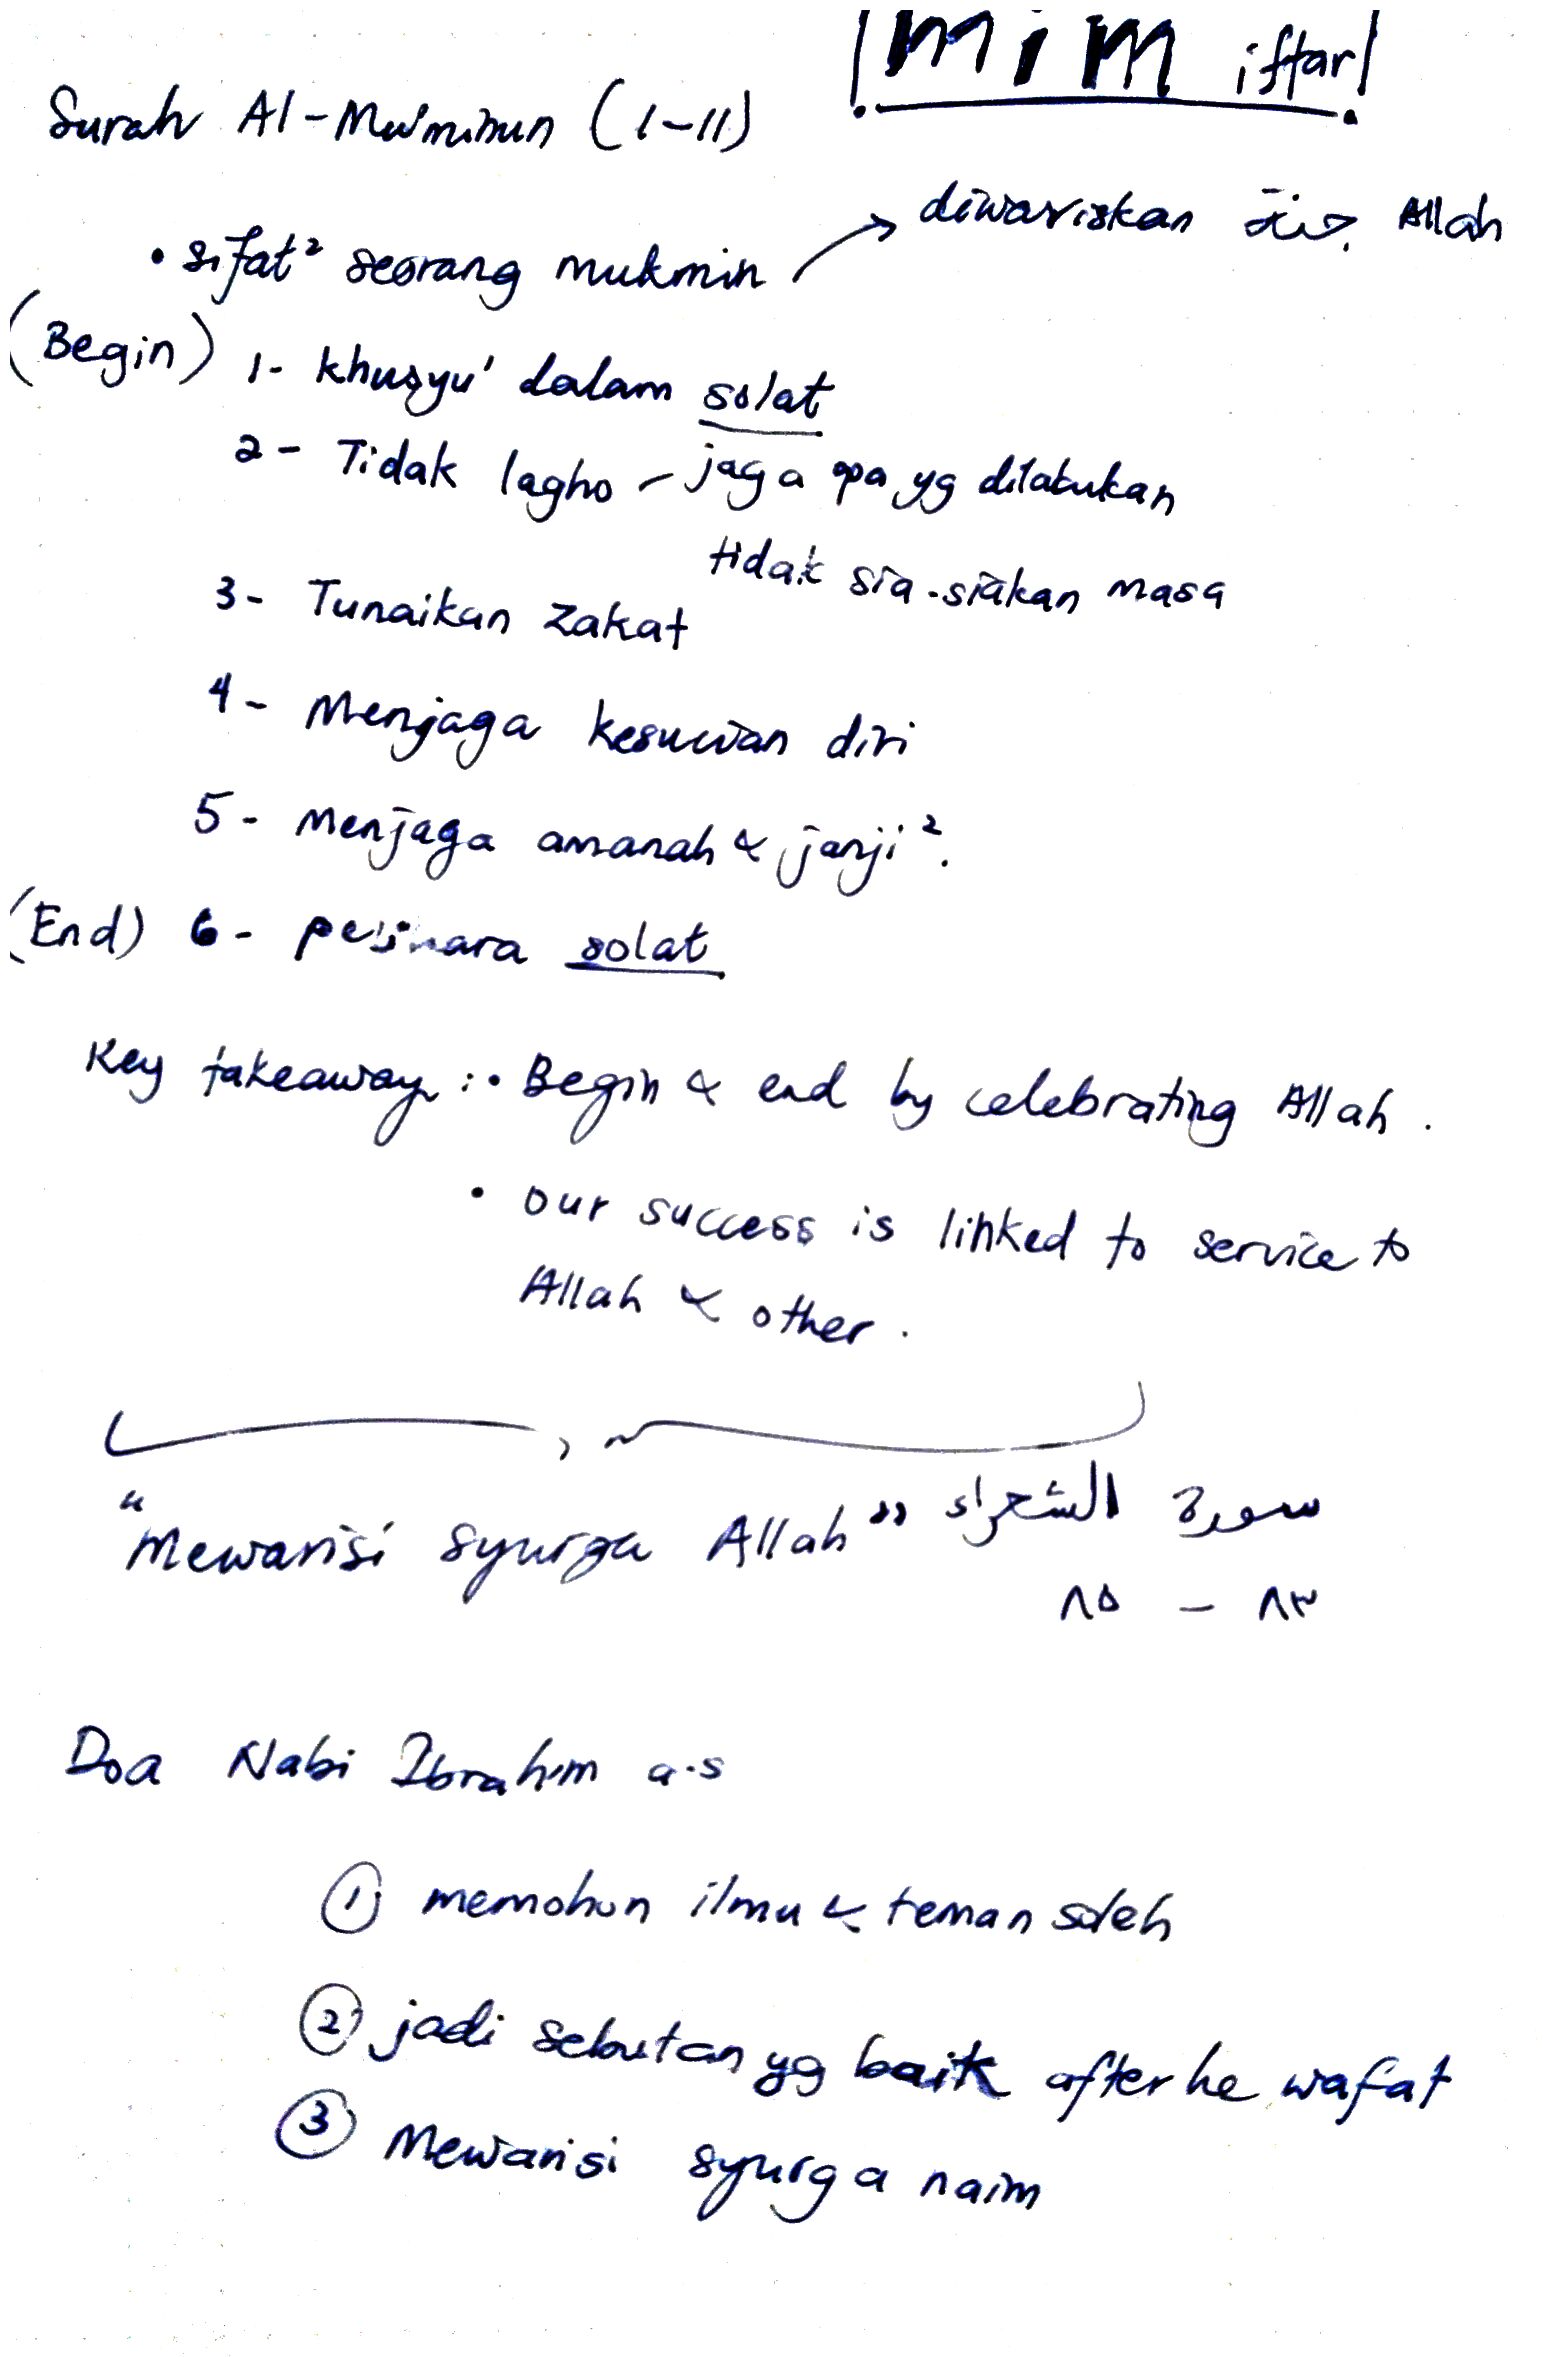 MIM iftar
Surah Al-Mu'minun (1-11)
• sifat² seorang mukmin → diwariskan جنة Allah
(Begin) 1- khusyu' dalam solat
2- Tidak lagho - jaga apa yg dilakukan
tidak sia-siakan masa
3- Tunaikan zakat
4- Menjaga kesucian diri
5- Menjaga amanah & janji².
(End) 6- solat
Key takeaway : • Begin & end by celebrating Allah.
• our success is linked to service to
Allah & other.
"Mewarisi syurga Allah" سورة الشعراء
٨٣ - ٨٥
Doa Nabi Ibrahim a.s
① memohon ilmu & teman soleh
② jadi sebutan yg baik after he wafat
③ Mewarisi syurga naim